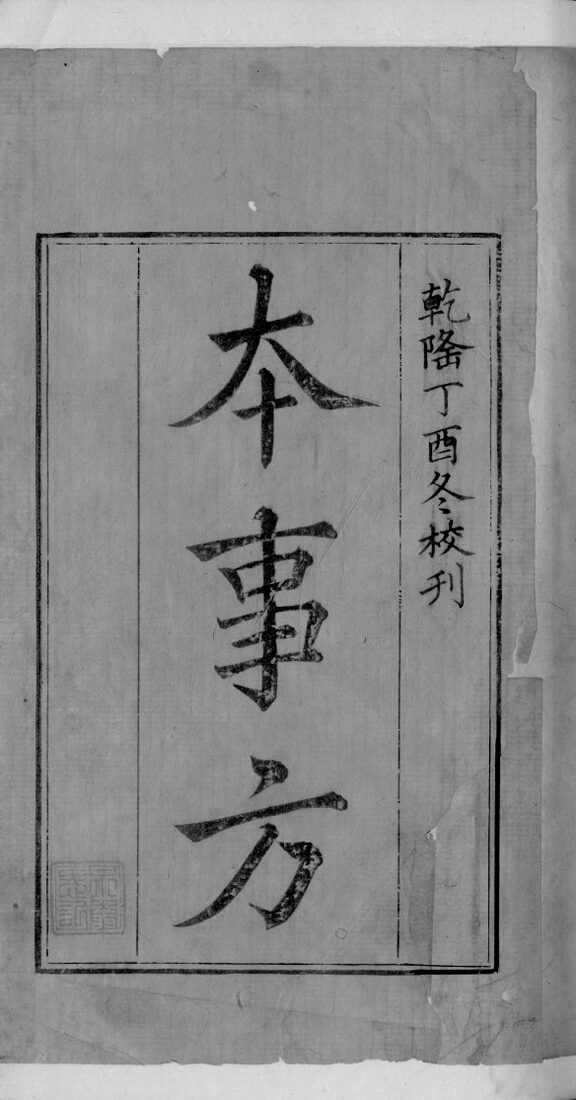 乾隆丁酉冬校刊
本事方